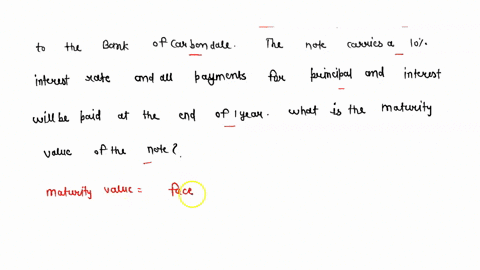 to the Bank of Carbondale. The note carries a 10%
interest rate and all payments for principal and interest
will be paid at the end of 1 year. what is the maturity
value of the note?
maturity value = face